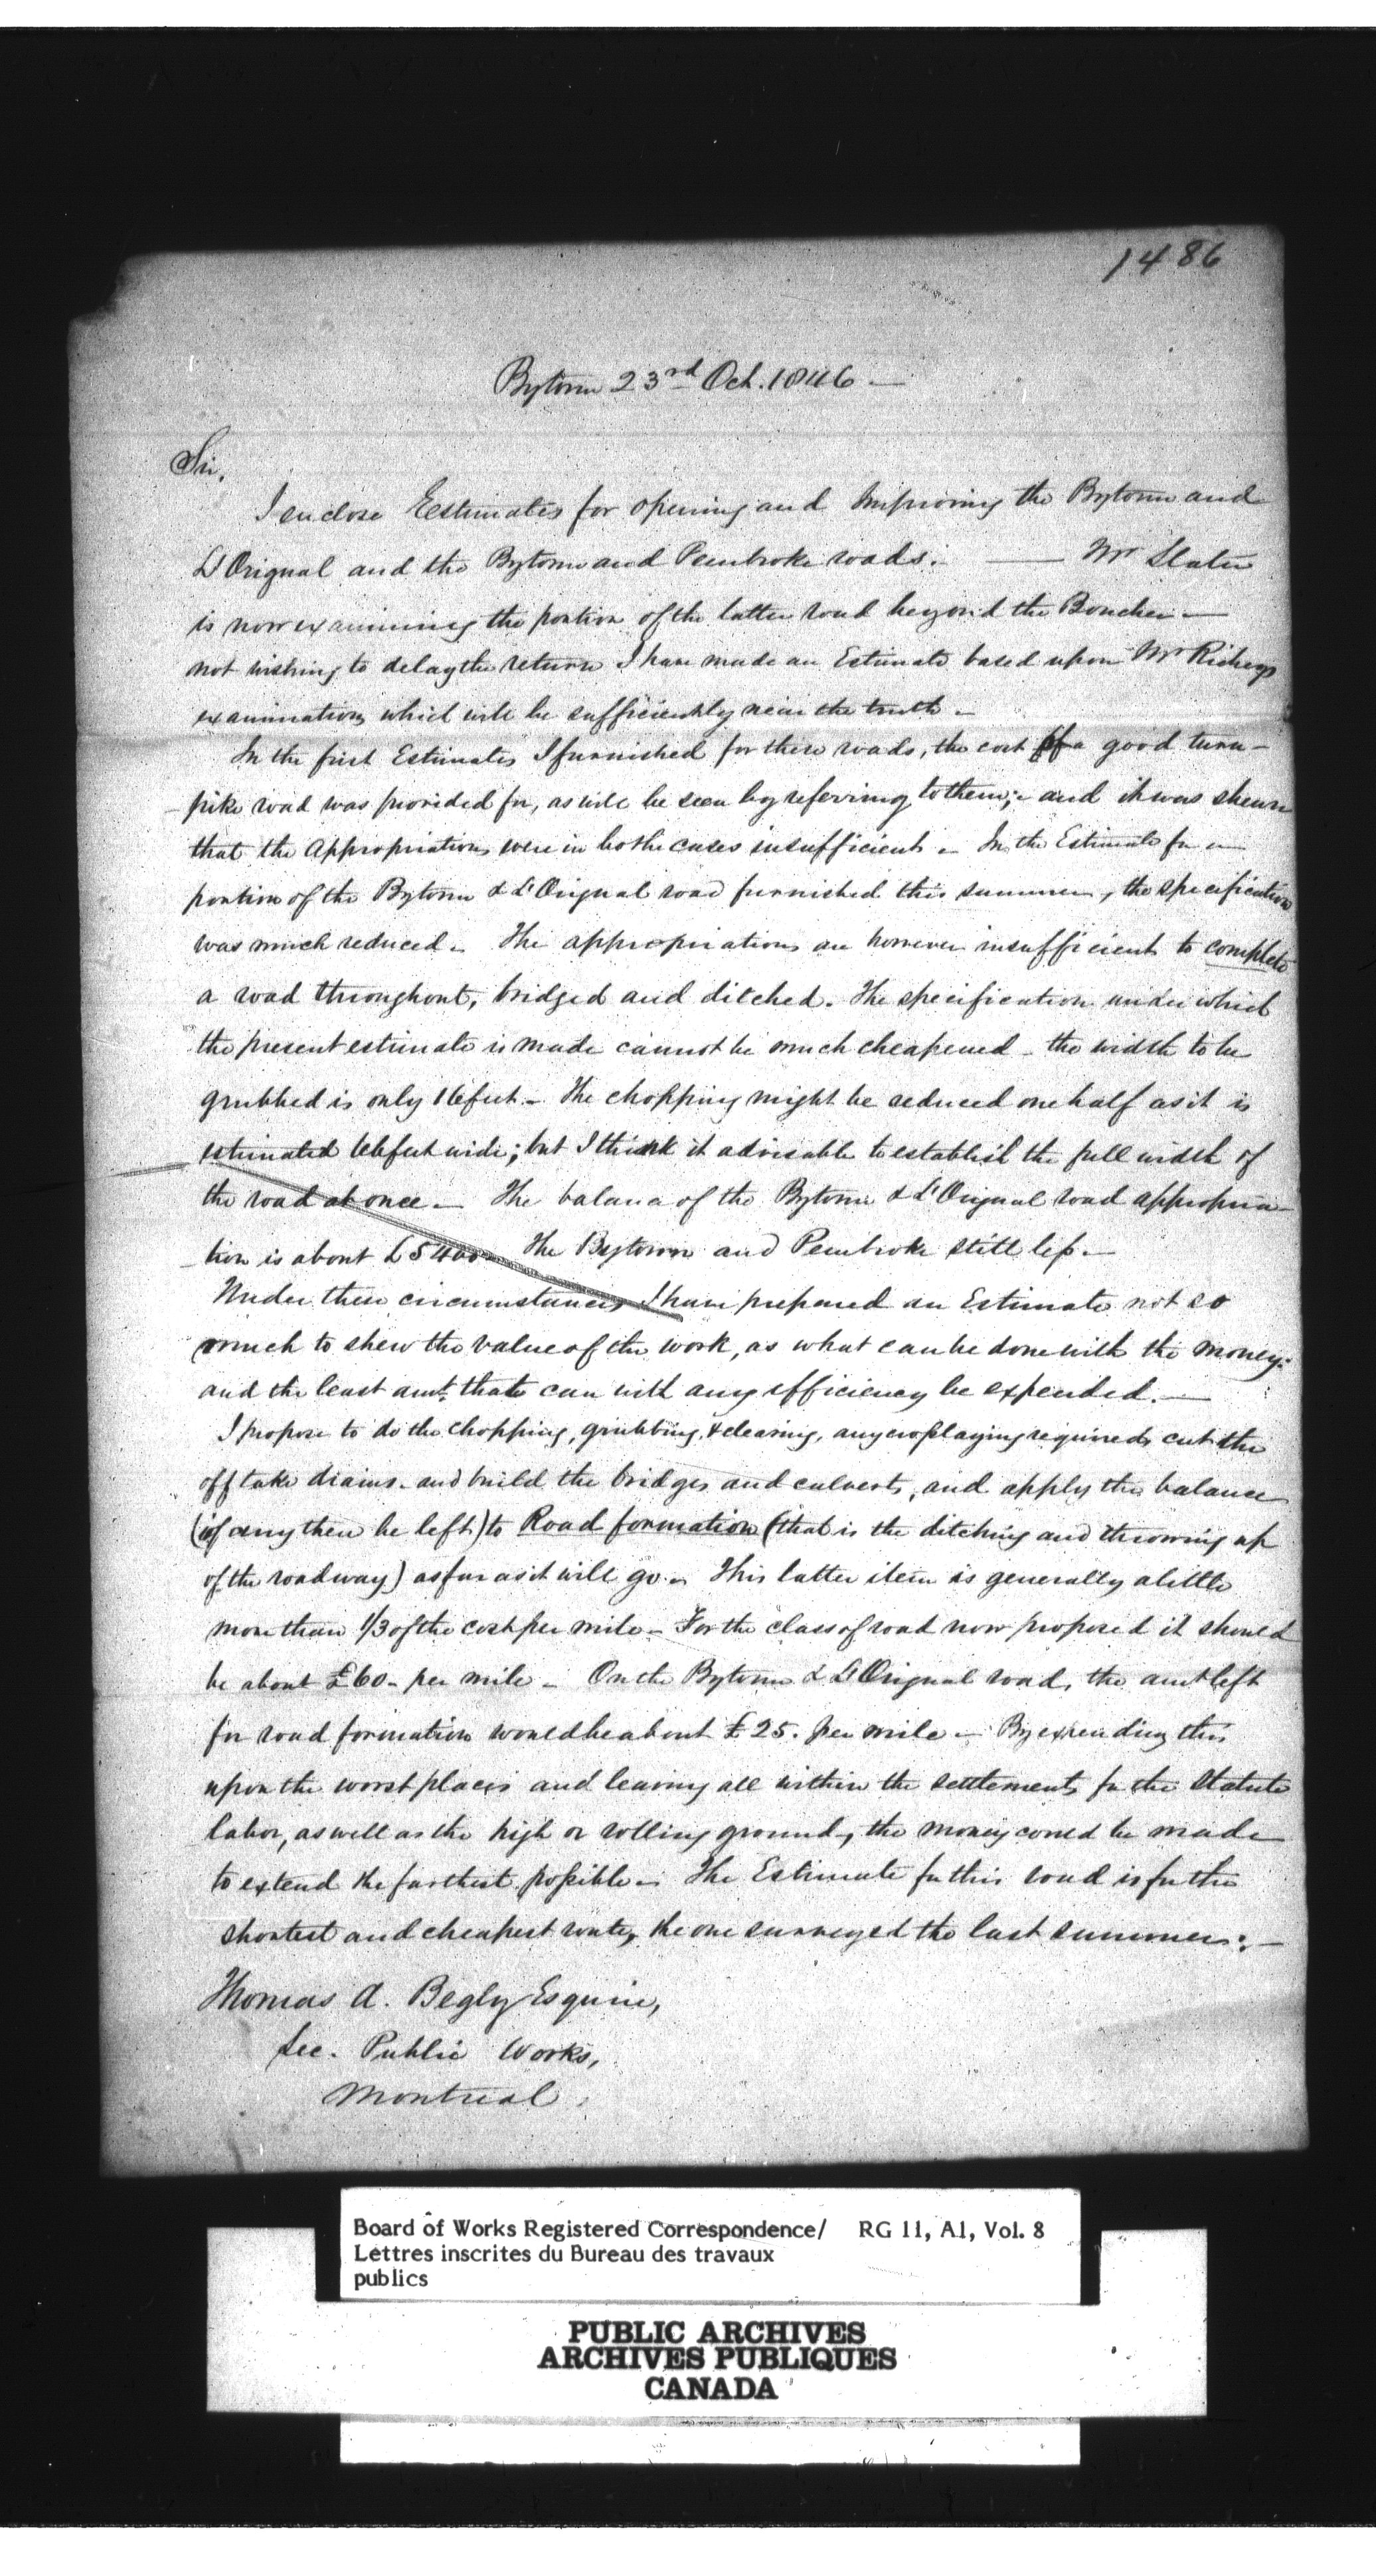 1486
Bytown 23rd Oct. 1846 —
Sir,
I enclose Estimates for opening and Improving the Bytown and
L'Orignal and the Bytown and Pembroke roads. — Mr Slater
is now examining the portion of the latter road beyond the Bonchere —
not wishing to delay the return I have made an Estimate based upon Mr Richeys
examination, which will be sufficiently near the truth —
In the first Estimates I furnished for these roads, the cost of a good turn-
-pike road was provided for, as will be seen by referring to them; - and it was shewn
that the Appropriations were in both cases insufficient - In the Estimate for a
portion of the Bytown & L'Orignal road furnished this summer, the specification
was much reduced - The appropriations are however insufficient to complete
a road throughout, bridged and ditched. The specification under which
the present estimate is made cannot be much cheapened - the width to be
grubbed is only 16 feet - The chopping might be reduced one half as it is
estimated 66 feet wide; but I think it advisable to establish the full width of
the road at once - The balance of the Bytown & L'Orignal road appropria-
-tion is about £5400 - The Bytown and Pembroke still less -
Under these circumstances I have prepared an Estimate not so
much to shew the value of the work, as what can be done with the money:
and the least amt. that can with any efficiency be expended. —
I propose to do the chopping, grubbing, & clearing, any croslaying required, cut the
off take drains - and build the bridges and culverts, and apply the balance
(if any there be left) to Road formation (that is the ditching and throwing up
of the roadway) as far as it will go - This latter item is generally a little
more than 1/3 of the cost per mile - For the class of road now proposed it should
be about £60 - per mile - On the Bytown & L'Orignal road, the amt left
for road formation would be about £25. per mile - By expending this
upon the worst places and leaving all within the settlements for the Statute
labor, as well as the high or rolling ground, the money could be made
to extend the farthest possible - The Estimate for this road is for the
shortest and cheapest route, the one surveyed the last summer: -
Thomas A. Begly Esquire,
Sec. Public Works,
Montreal.
Board of Works Registered Correspondence/ RG 11, A1, Vol. 8
Lettres inscrites du Bureau des travaux
publics
PUBLIC ARCHIVES
ARCHIVES PUBLIQUES
CANADA